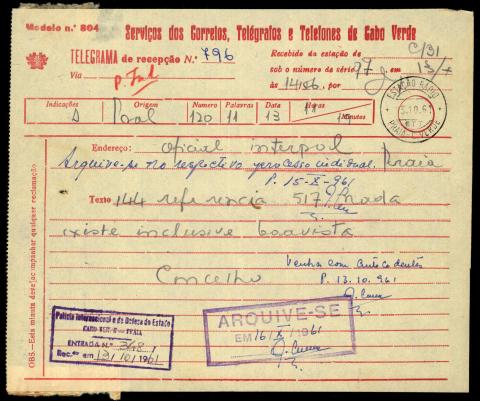 Modelo n.º 804
Serviços dos Correios, Telégrafos e Telefones de Cabo Verde
TELEGRAMA de recepção N.º 796
Recebido da estação de C/31
Via
sob o número da série 97 g em 13/x
às 1486, por
Indicações Origem Número Palavras Data Minutos
120 11 13
ESTAÇÃO RÁDIO
PRAIA-C. VERDE
Endereço: Oficial interpol Praia
Arquive-se no respectivo processo individual.
P. 15-X-961
Texto 144 referencia 517 Nada
existe inclusive boavista
Concelho
Venha com antecedentes
P. 13.10.961
Polícia Internacional e de Defesa do Estado
CABO VERDE — PRAIA
ENTRADA N.º 3481
Rec.º em 13/10/1961
ARQUIVE-SE
EM 16/X/1961
OBS.—Esta minuta deve acompanhar qualquer reclamação